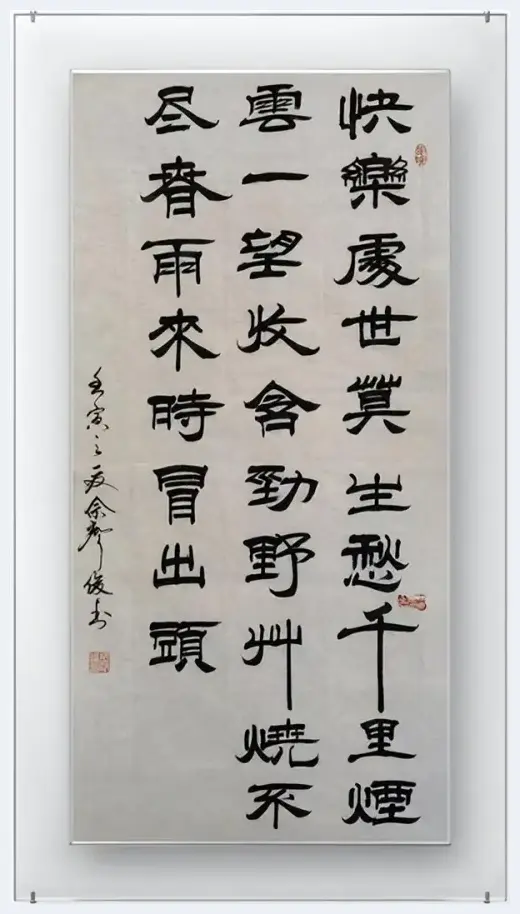 快樂處世莫生愁千里煙
雲一望收含勁野艸燒不
尽春雨來時冒出頭
壬寅之夏余俊书